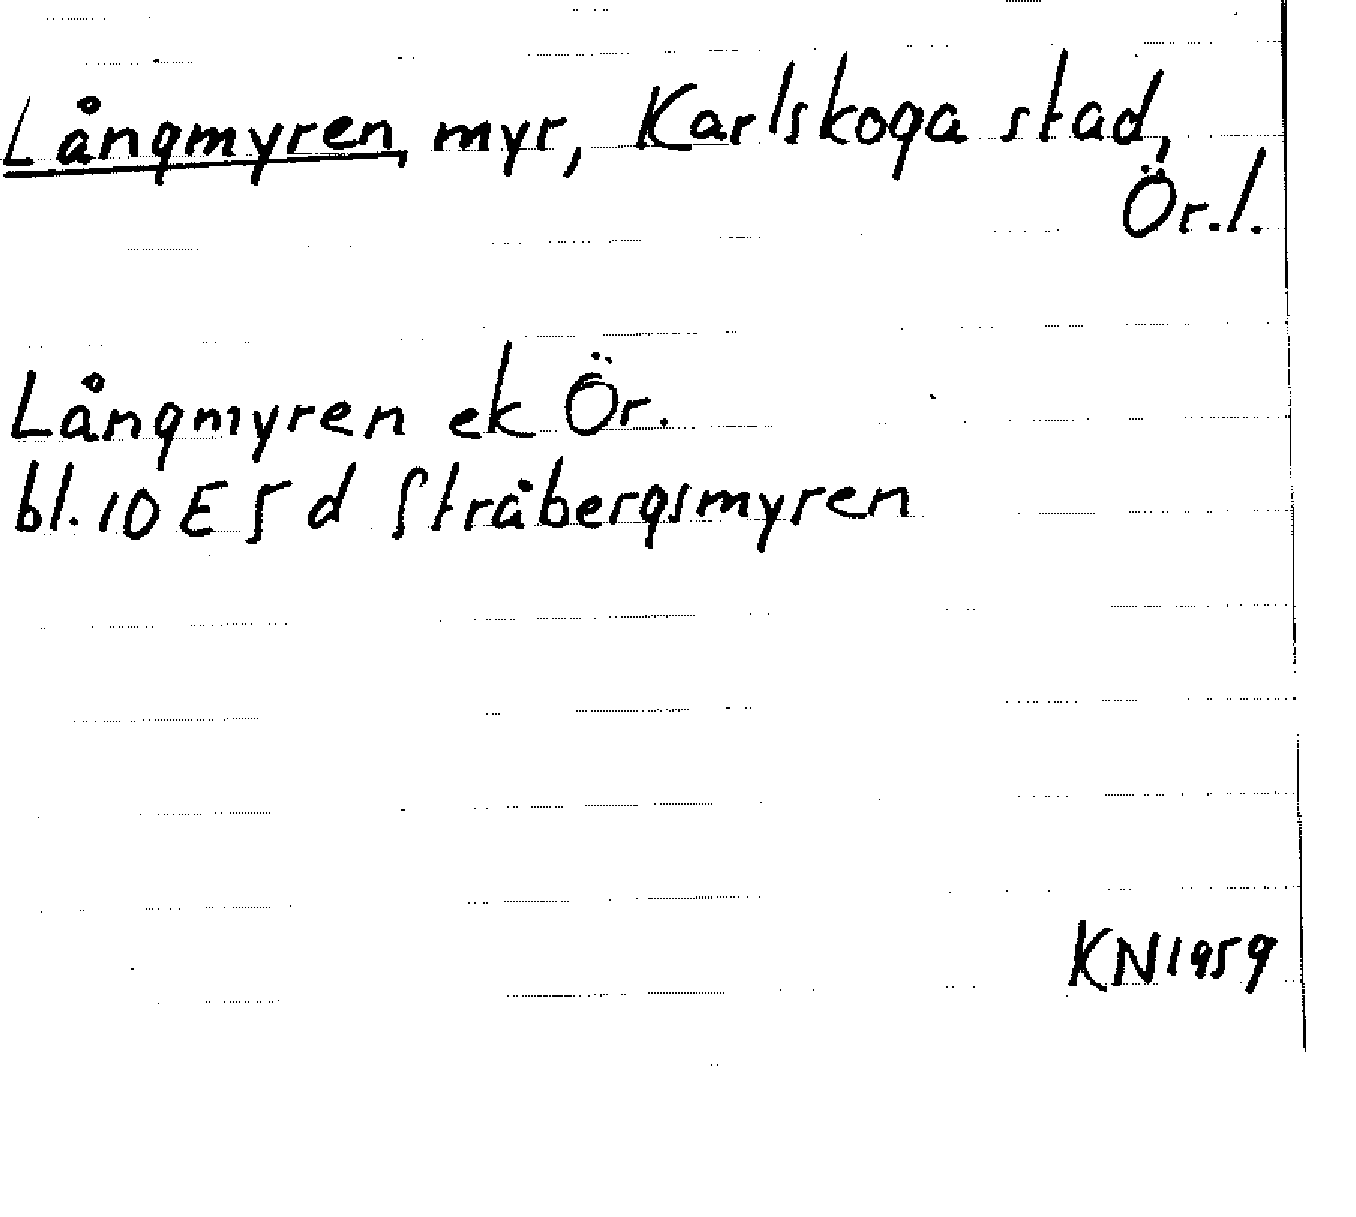 Långmyren, myr, Karlskoga stad,
Ör.l.
Långmyren ek Ör.
bl. 10 E 5 d Stråbergsmyren
KN 1959